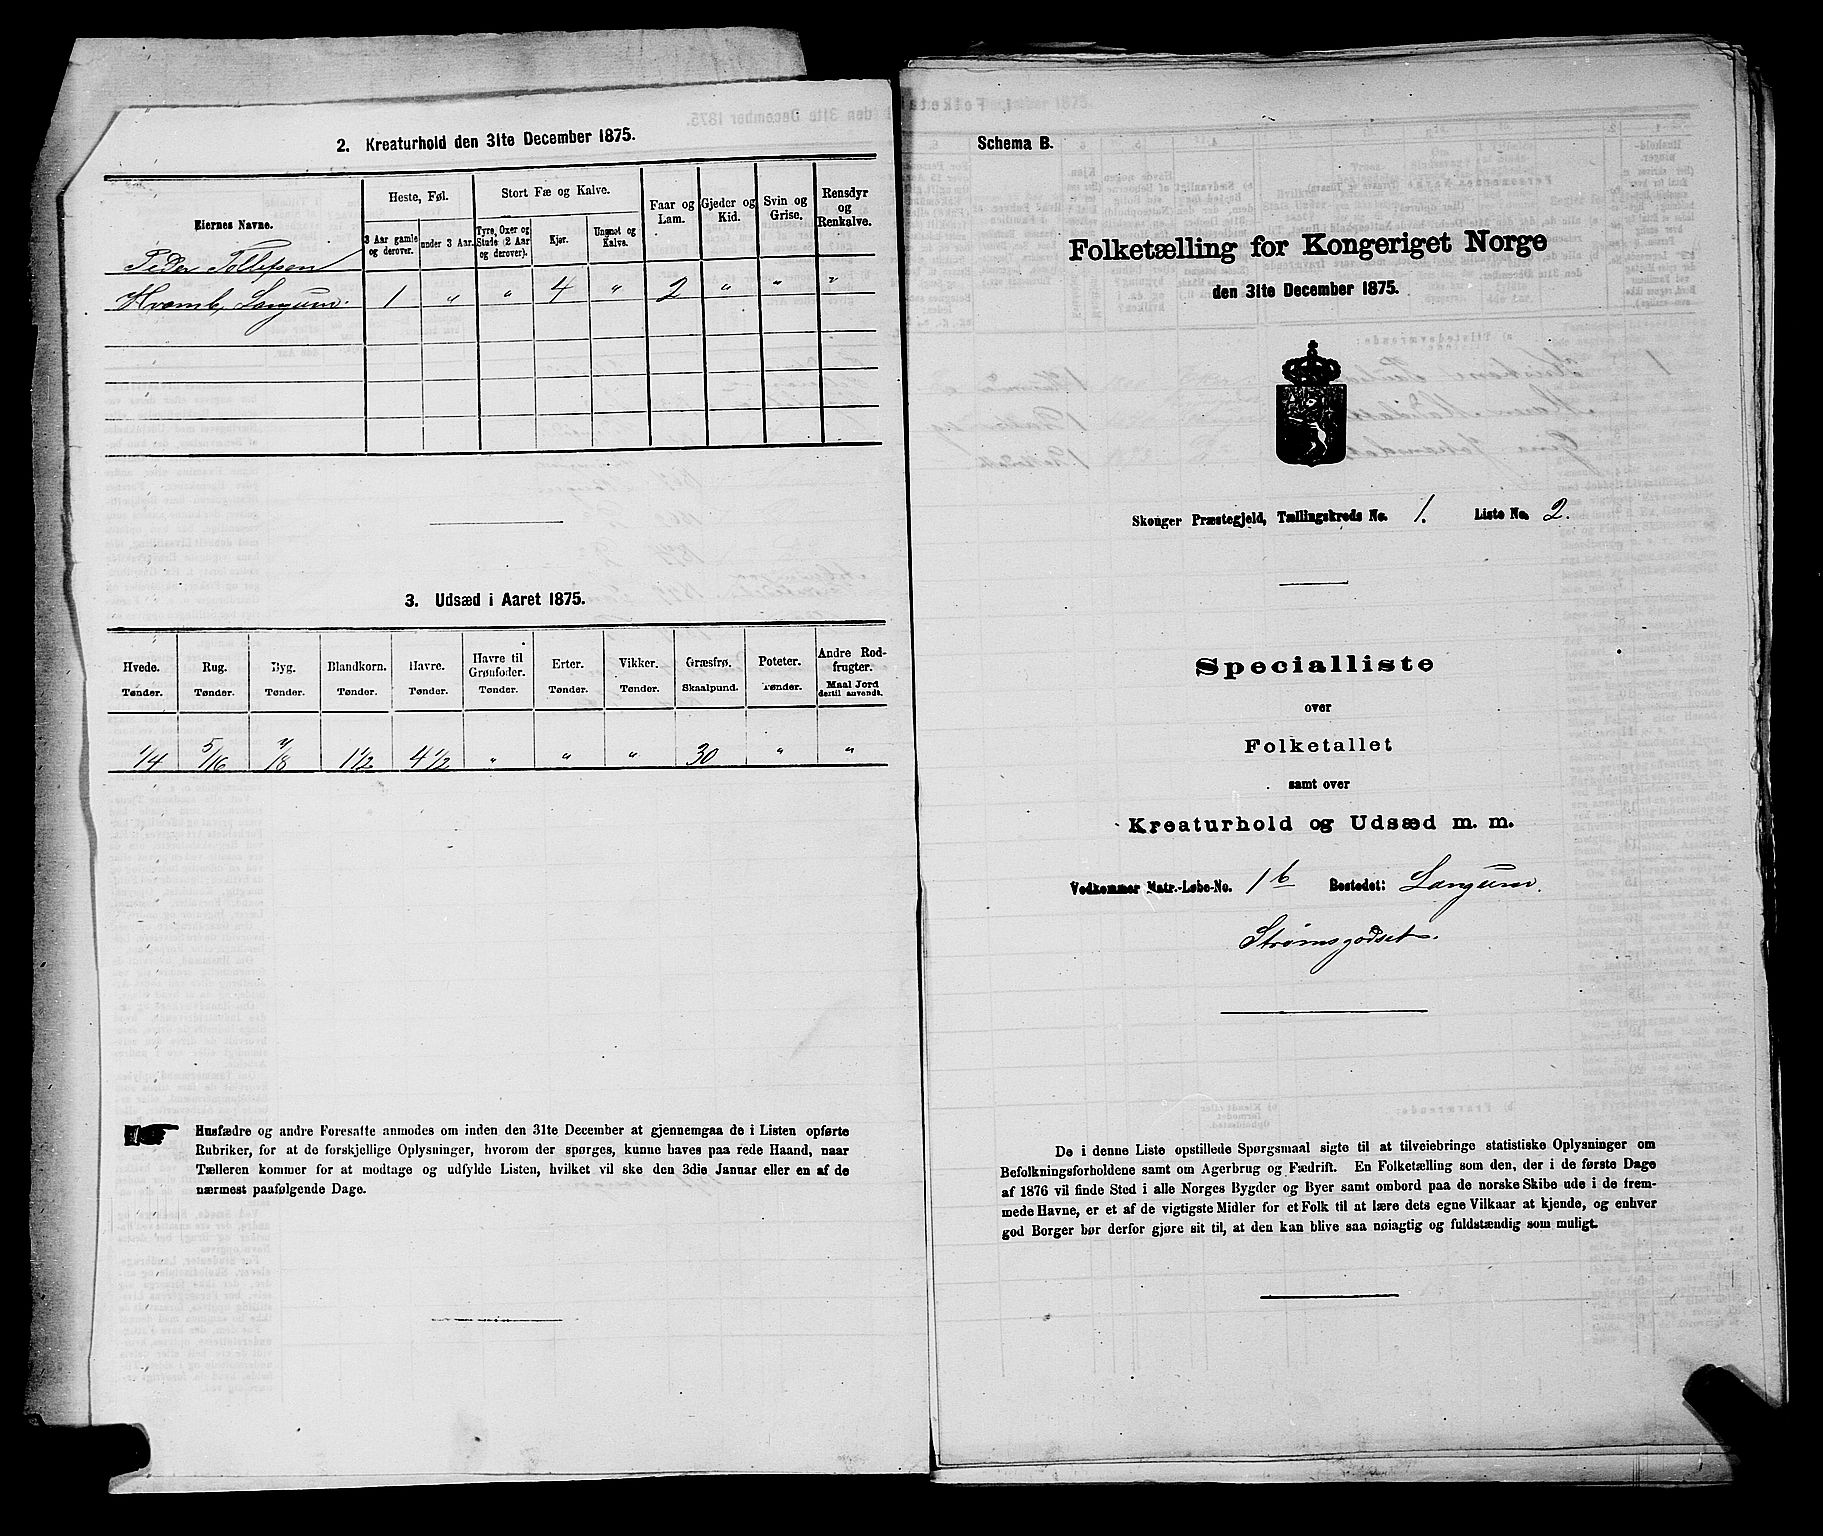 2. Kreaturhold den 31te December 1875.
Eiernes Navne.
Heste, Føl.
3 Aar gamle og derover.
under 3 Aar.
Stort Fæ og Kalve.
Tyre, Oxer og Stude (2 Aar og derover).
Kjør.
Ungnøt og Kalve.
Faar og Lam.
Gjeder og Kid.
Svin og Grise.
Rensdyr og Renkalve.
Peder Tollefsen
Hvamb, Langum. 1 " " 4 " 2 " " "
3. Udsæd i Aaret 1875.
Hvede. Rug. Byg. Blandkorn. Havre. Havre til Grønfoder. Erter. Vikker. Græsfrø. Poteter. Andre Rodfrugter.
Tønder. Tønder. Tønder. Tønder. Tønder. Tønder. Tønder. Tønder. Skaalpund. Tønder. Maal Jord dertil anvendt.
1/4 5/16 7/8 1 1/2 4 1/2 " " " 30 " "
Husfædre og andre Foresatte anmodes om inden den 31te December at gjennemgaa de i Listen opførte
Rubriker, for at de forskjellige Oplysninger, hvorom der spørges, kunne haves paa rede Haand, naar
Tælleren kommer for at modtage og udfylde Listen, hvilket vil ske den 3die Januar eller en af de
nærmest paafølgende Dage.
Schema B.
Folketælling for Kongeriget Norge
den 31te December 1875.
Skouger Præstegjeld, Tællingskreds No. 1. Liste No. 2.
Specialliste
over
Folketallet
samt over
Kreaturhold og Udsæd m. m.
Vedkommer Matr.-Løbe-No. 1b Bostedet: Langum.
Strømsgodset.
De i denne Liste opstillede Spørgsmaal sigte til at tilveiebringe statistiske Oplysninger om
Befolkningsforholdene samt om Agerbrug og Fædrift. En Folketælling som den, der i de første Dage
af 1876 vil finde Sted i alle Norges Bygder og Byer samt ombord paa de norske Skibe ude i de frem-
mede Havne, er et af de vigtigste Midler for et Folk til at lære dets egne Vilkaar at kjende, og enhver
god Borger bør derfor gjøre sit til, at den kan blive saa nøiagtig og fuldstændig som muligt.